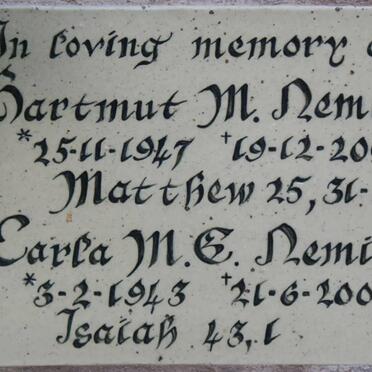 In loving memory o
Hartmut M. Nem
*25-11-1947 †19-12-200
Matthew 25,31-
Carla M.E. Nemi
*3-2-1943 †21-6-200
Isaiah 43,1